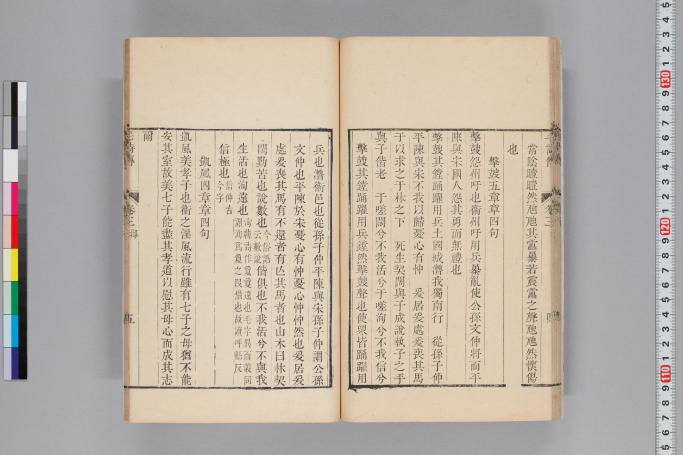 常陰曀曀然虺虺其靁暴若震靁之聲虺虺然懷傷
也
擊鼓五章章四句
擊鼓怨州吁也衞州吁用兵暴亂使公孫文仲將而平
陳與宋國人怨其勇而無禮也
擊鼓其鏜踊躍用兵土國城漕我獨南行 從孫子仲
平陳與宋不我以歸憂心有忡 爰居爰處爰喪其馬
于以求之于林之下 死生契闊與子成說執子之手
與子偕老 于嗟闊兮不我活兮于嗟洵兮不我信兮
擊鼓其鏜踊躍用兵鏜然擊鼓聲也使衆皆踊躍用
兵也漕衞邑也從孫子仲平陳與宋孫子仲謂公孫
文仲也平陳於宋憂心有忡憂心忡忡然也爰居爰
處爰喪其馬有不還者有亡其馬者也山木曰林契
闊勤苦也說數也偕俱也不我活兮不與我
生活也洵遠也
信極也
凱風四章章四句
凱風美孝子也衞之淫風流行雖有七子之母猶不能
安其室故美七子能盡其孝道以慰其母心而成其志
爾